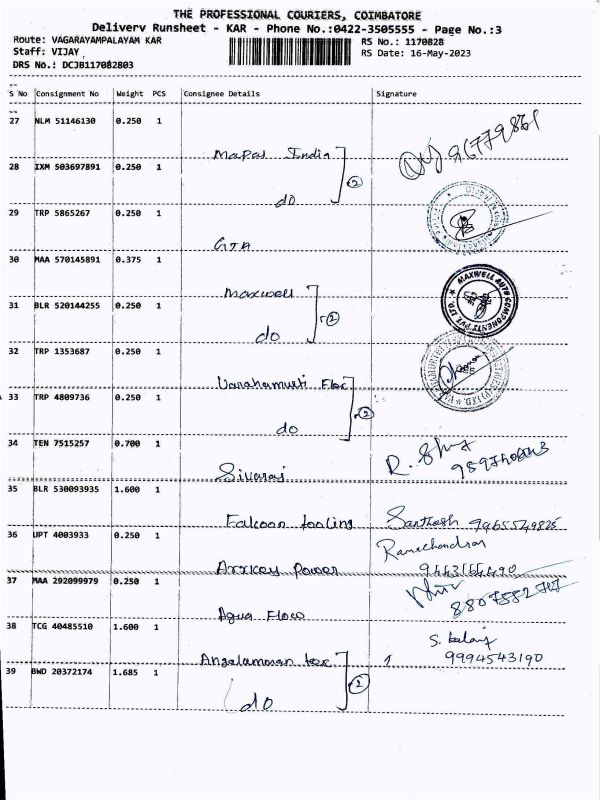 THE PROFESSIONAL COURIERS, COIMBATORE
Delivery Runsheet - KAR - Phone No.:0422-3505555 - Page No.:3
Route: VAGARAYAMPALAYAM KAR
RS No.: 1170828
Staff: VIJAY
RS Date: 16-May-2023
DRS No.: DCJB117082803
S No Consignment No Weight PCS Consignee Details Signature
27 NLM 51146130 0.250 1
Mapal India
28 IXM 503697891 0.250 1
2
do
29 TRP 5865267 0.250 1
GTA
30 MAA 570145891 0.375 1
Maxwell
MAXWELL AUTO COMPONENTS PVT LTD.
31 BLR 520144255 0.250 1
2
do
32 TRP 1353687 0.250 1
Varahamurti Flex
33 TRP 4809736 0.250 1
2
do
34 TEN 7515257 0.700 1
Sivaraj
35 BLR 530093935 1.600 1
Falcoon tooling Santhosh 9965549825
36 UPT 4003933 0.250 1
Ramachandran
Arxkey Power
37 MAA 292099979 0.250 1
Aqua Flow
38 TCG 40485510 1.600 1
Angalamman tex
9994543190
39 BWD 20372174 1.685 1
2
do